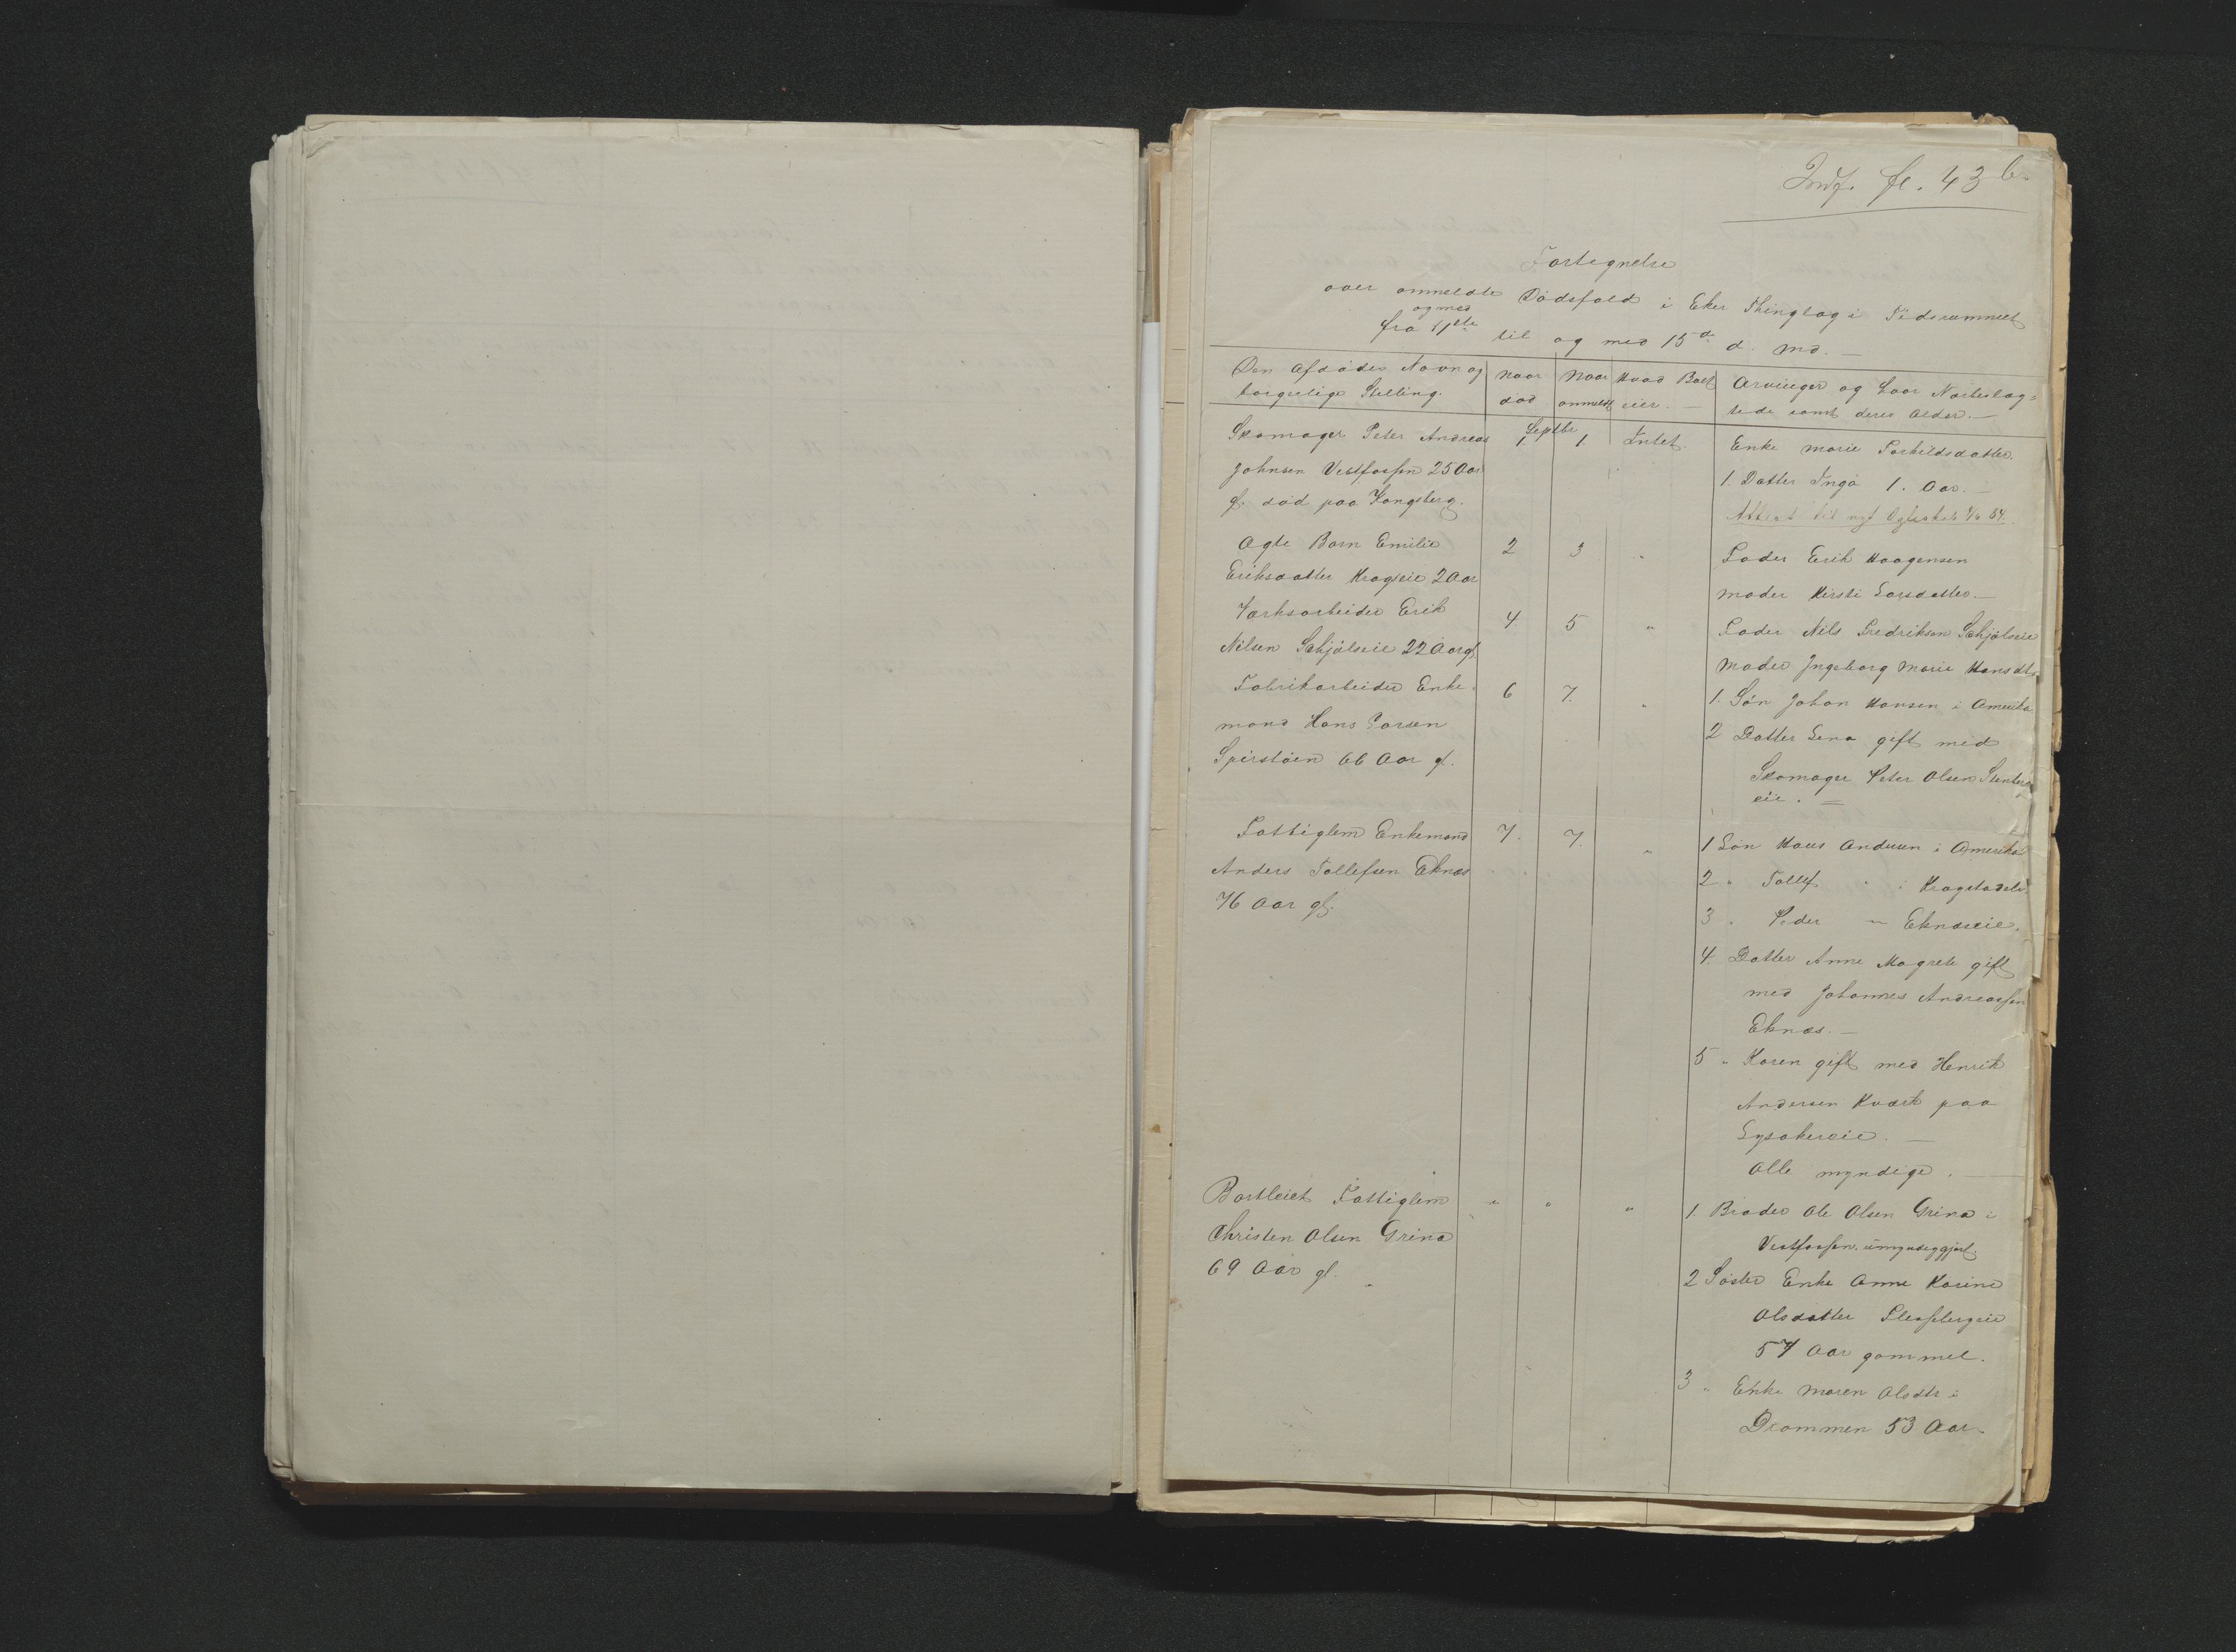 Indf. fl. 43 b.
Fortegnelse
over anmeldte Dödsfald i Eker Thinglag i Tidsrummet
og med
fra 11te til og med 15d d. Md. —
Den Afdödes Navn og
borgerlige Stilling.
Naar
död
Naar
anmeldt
Hvad Boet
eier. —
Arvinger og Laav Nærbeslæg=
tede samt deres Alder. —
Skomager Peter Andreas
Johnsen Vestfossen 25 Aar
gl. död paa Kongsberg.
Septbr
1. 1. Intet.
Enke Marie Torkildsdatter.
1. Datter Inga 1. Aar. —
Attest til nyt Ægteskab
Ægte Barn Emilie
Eriksdatter Kragseie 2 Aar
2 3 "
Fader Erik Haagensen
Moder Kirsti Larsdatter. —
Værksarbeider Erik
Nilsen Schjölseie 22 Aar gl.
4 5 "
Fader Nils Fredriksen Schjölseie
Moder Ingeborg Marie Hansdtr
Fabrikarbeider Enke=
mand Hans Larsen
Spirstöen 66 Aar gl.
6 7. "
1. Sön Johan Hansen i Amerika
2 Datter Lena gift med
Skomager Peter Olsen Stenberg
eie. =
Fattiglem Enkemand
Anders Tollefsen Eknæs
76 Aar gl.
7. 7. "
1 Sön Hans Andersen i Amerika
2 " Tollef " i Kragstadeie
3 " Peder — Eknæseie.
4. Datter Anne Magrete gift
med Johannes Andreassen
Eknæs. —
5 " Karen gift med Henrik
Andersen Kværk paa
Lysakereie. —
Alle myndige. —
Bortleiet Fattiglem
Christen Olsen Grina
69 Aar gl.
" " "
1. Broder Ole Olsen Grina i
Vestfossen. umyndiggjort.
2 Söster Enke Anne Karine
Olsdatter
57 Aar gammel.
3 " Enke Maren Olsdtr i
Drammen 53 Aar.